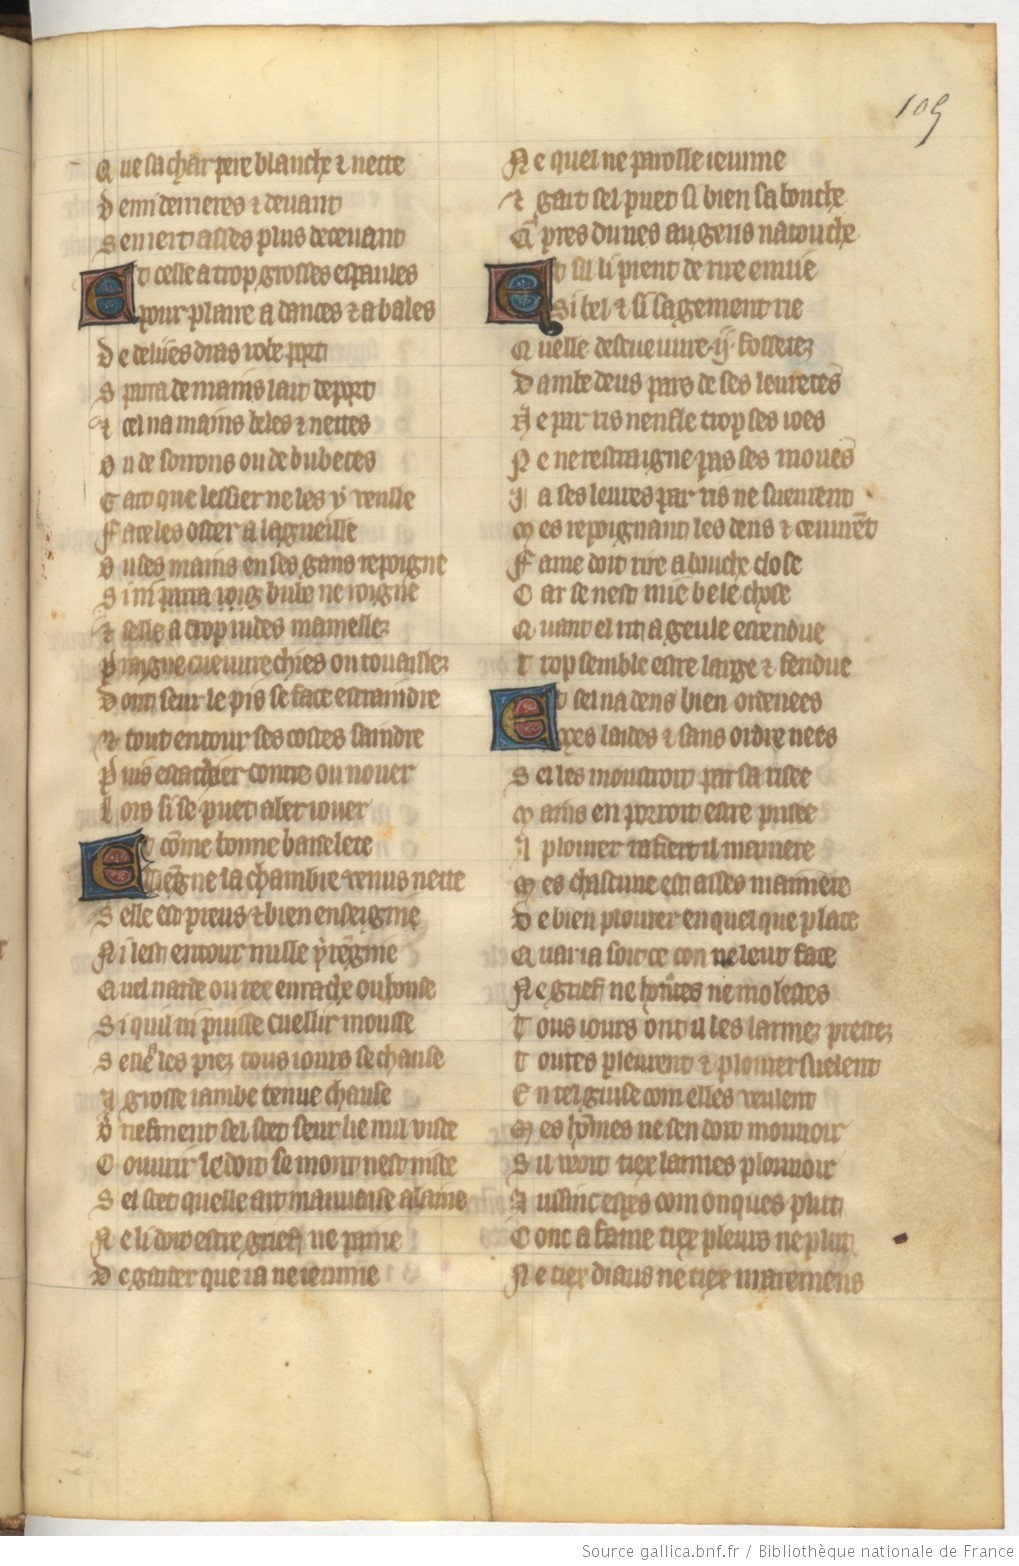 105
Que sa char pere blanche ⁊ nette
Demi derrieres ⁊ devant
Sen iert asses plus decevant
Et celle a trop grosses espaules
pour plaire a dances ⁊ a bales
De delies dras robe port
Si parra de mains lait deport
⁊ cel na mains beles ⁊ nettes
Ou de sorrons ou de bubetes
Gart que lessier ne les y veulle
Face les oster a lagueille
Ou ses mains en ses gans repoigne
Si ni parra
bube ne roigne
⁊ selle a trop ludes mamellez
Praigne cuevrechies ou touaillez
Dont seur le pis se face estraindre
⁊ tout entour ses costes saindre
Puis estachier coutre ou nouer
Lors si se puet aler iouer
Et cōme bonne baisselete
Tiēgne la chambre venus nette
Selle est preus ⁊ bien enseignie
Ni lest entour nulle yregnie
Quel narde ou ree errache ou house
Si quil ni puisse cuellir mousse
Se
les piez tous iours se chause
A grosse iambe tenue chause
Briefment sel scet seur lie nul visce
Couvrir le doit se mont nest nisce
Sel scet quelle ait mauvaise alaine
Ne li doit estre grief ne paine
De garder que ia ne ieunne
Ne quel ne parolle ieunne
⁊ gart sel puet si bien sa bouche
Que pres du nes aus gens natouche
Et sil li prent de rire envie
Si bel ⁊ si sagement rie
Quelle descuevure .ij. fossetez
Dambe deus pars de ses levretes
Ne par ris nenfle trop ses ioes
Ne ne restraigne pas ses moues
Ja ses levres par ris ne suevrent
Mes repoignant les dens ⁊ cevurēt
Fame doit rire a bouche close
Car se nest mie bele chose
Quant el rit a geule estendue
Trop semble estre large ⁊ fendue
Et sel na dens bien ordenees
Mes laides ⁊ sans ordre nees
Sel les moustroit par sa risee
Mains en porroit estre prisee
A plourer rafiert il maniere
Mes chascune est asses maniere
De bien plourer en quel que place
Quar ia soit ce con ne leur face
Ne grief ne hōntes ne molestes
Tous iours ont il les larmez prestez
Toutes pleurent ⁊ plourer suelent
En tel guise com elles veulent
Mes hōmes ne sen doit mouvoir
Sil veoit tiex larmes plouvoir
Aussinc espes com onques plut
Conc a fame tiex pleurs ne plut
Ne tiex diaus ne tiex marremens
Source gallica.bnf.fr / Bibliothèque nationale de France